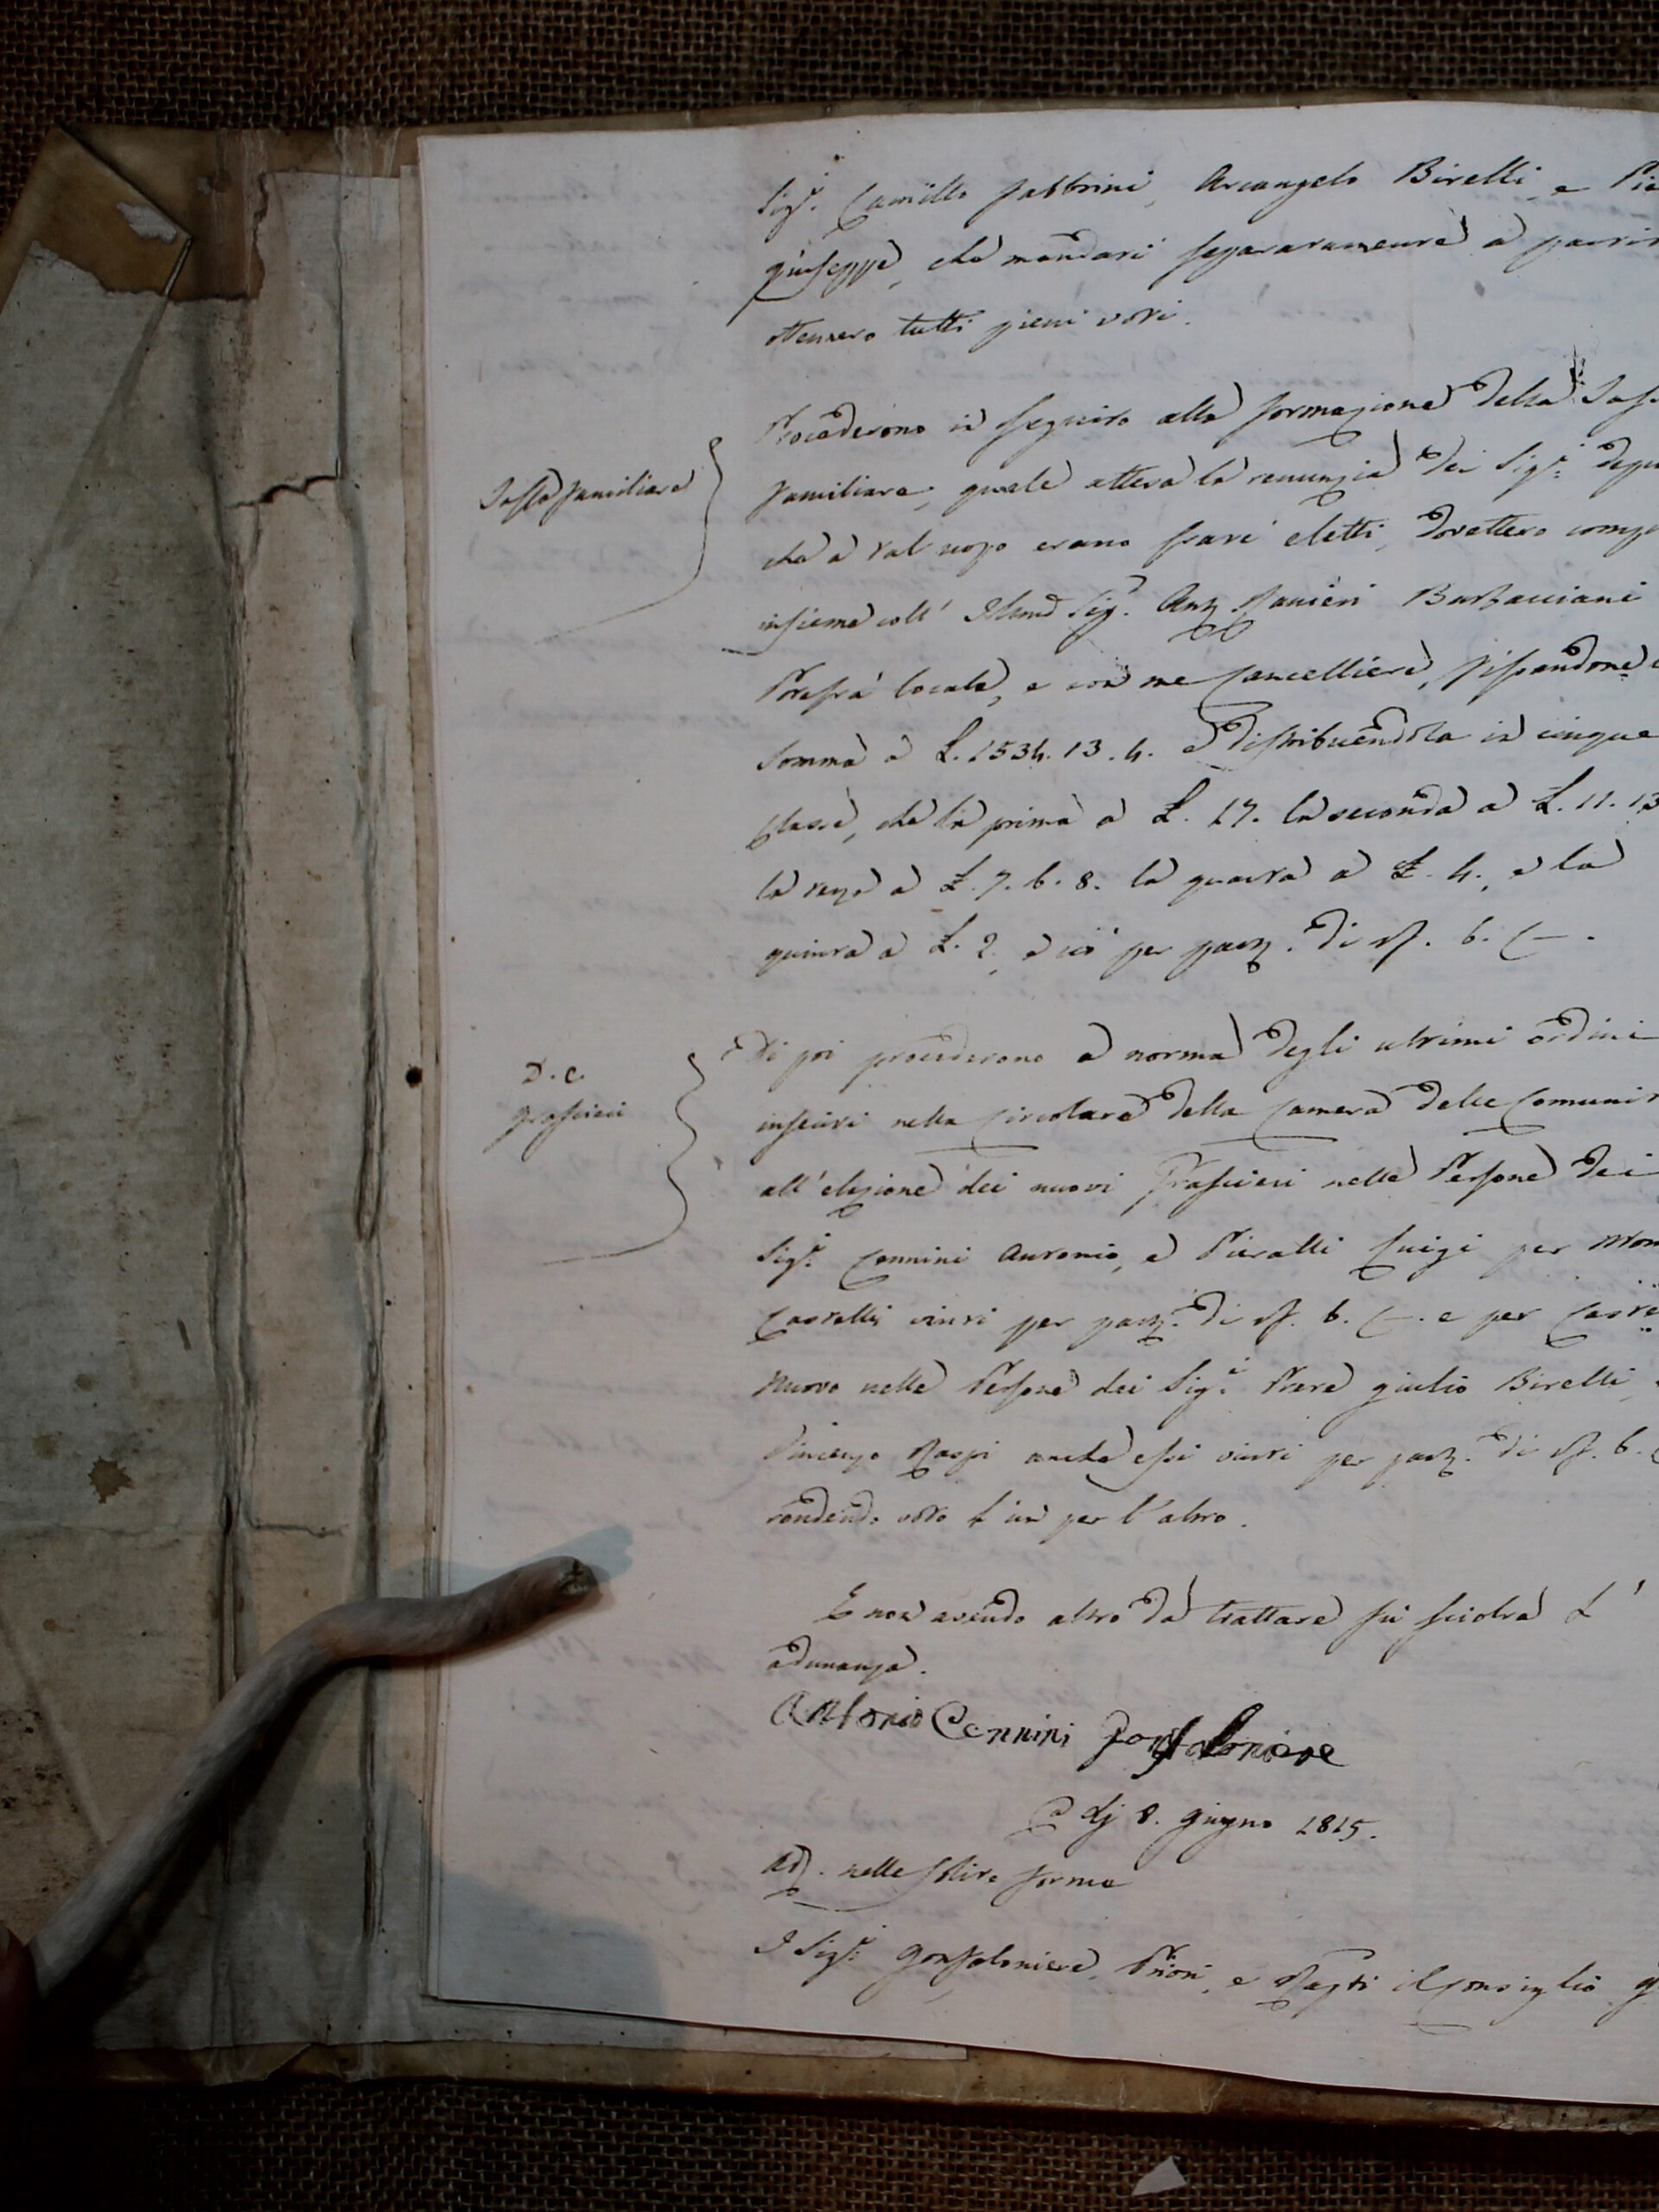 Sig.ri Camillo Fabbrini, Arcangelo Birelli, e Pie
Giuseppe, che mandati separatamente a partit
ottennero tutti pieni voti.
Procederono in seguito alla formazione della Tass
Tassa familiare
familiare, quale attesa la renunzia dei Sig.ri depu
che a tal uopo erano stati eletti, dovettero comp
insieme coll' Sig. Ranieri Barbacciani
Potestà locale, e con me Cancelliere, fissandone
somma a L. 1534. 13. 4. e distribuendola in cinque
Classi, che la prima a L. 17. la seconda a L. 11. 13
la terza a L. 7. 6. 8. la quarta a L. 4., e la
quinta a L. 2, e ciò per part. di 6.
Di poi procederono a norma degli ultimi ordini
D. C.
Grascieri
inseriti nella Circolare della Camera delle Comunit
all'elezione dei nuovi Grascieri nelle Persone dei
Sig.ri Cennini Antonio, e Pieralli Luigi per Mon
Castelli vinti per part. di 6. e per Caste
Nuovo nelle Persone dei Sig.ri Prete Giulio Birelli,
Vincenzo Raspi anche essi vinti per part. di 6.
rendendo voto l'un per l'altro.
E non avendo altro da trattare fu sciolta l'
adunanza.
Antonio Cennini Gonfaloniere
dj 8. Giugno 1815.
Ad. nelle solite forme
I Sig.ri Gonfaloniere, Priori, e il Consiglio g